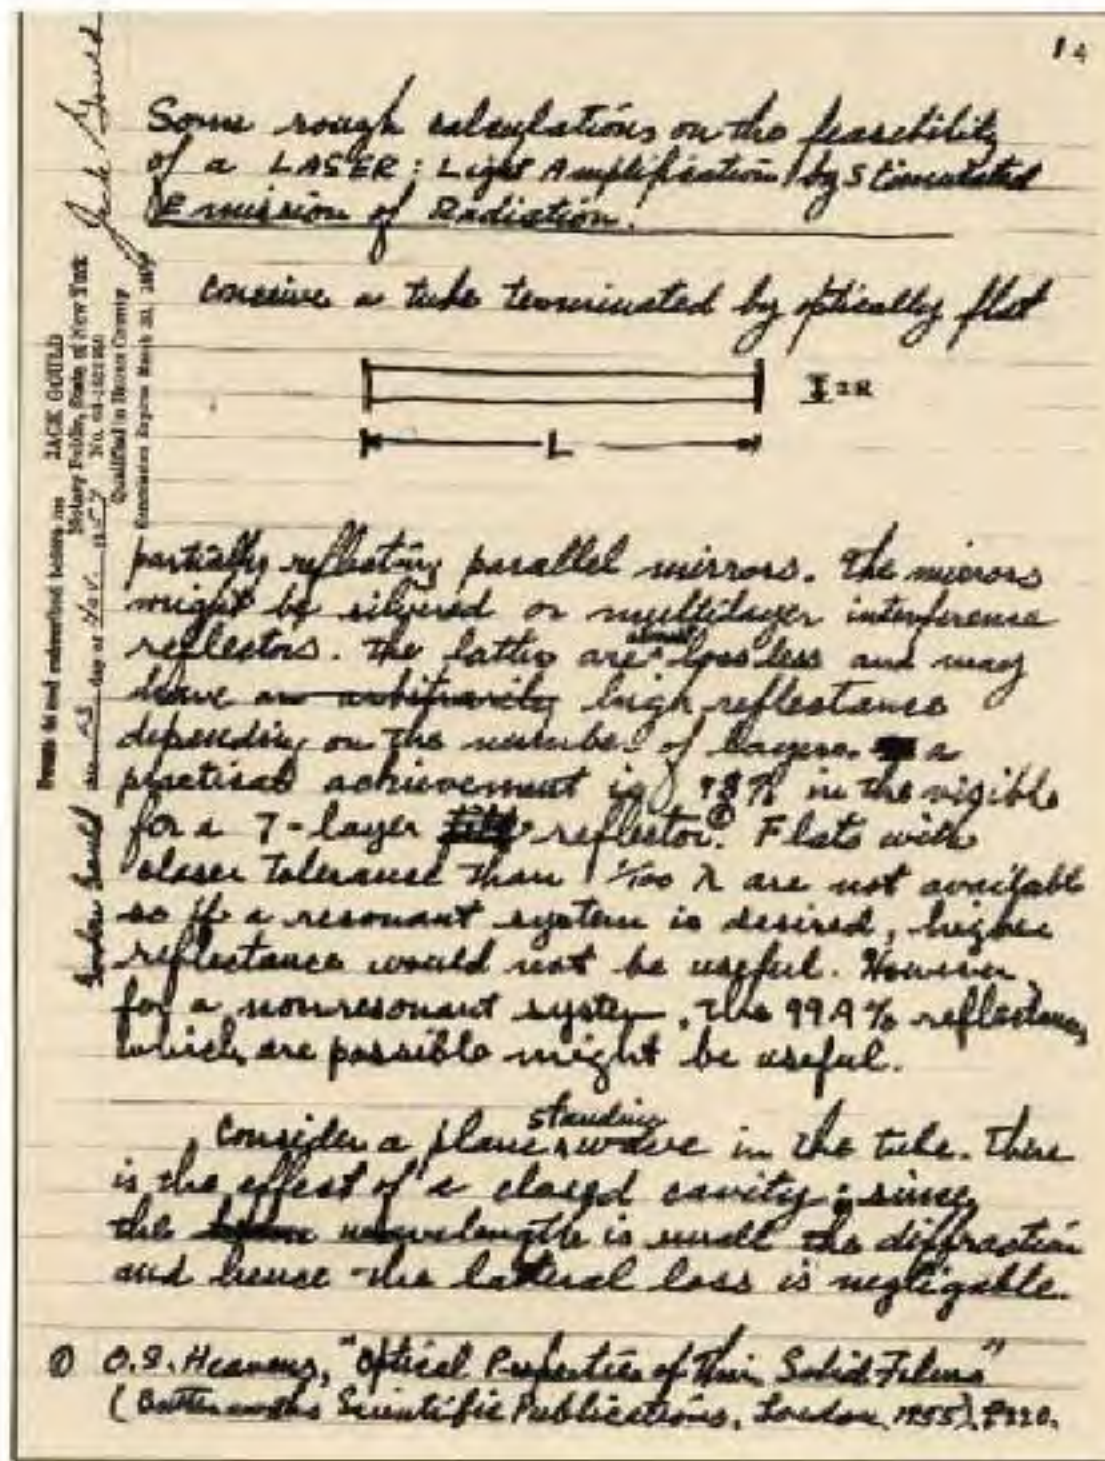 14
Some rough calculations on the feasibility
of a LASER: Light Amplification by Stimulated
Emission of Radiation.
conceive a tube terminated by optically flat
2R
L
partially reflecting parallel mirrors. The mirrors
might be silvered or multilayer interference
reflectors. The latter are almost lossless and may
have an arbitrarily high reflectance
depending on the number of layers. a
practical achievement is 98% in the visible
for a 7-layer reflector.① Flats with
closer tolerance than 1/100 λ are not available
so if a resonant system is desired, higher
reflectance would not be useful. However
for a nonresonant system, the 99.9% reflectances
which are possible might be useful.
Consider a plane standing wave in the tube. There
is the effect of a closed cavity; since
the wavelength is small the diffraction
and hence the lateral loss is negligable.
① O.S. Heavens, "Optical Properties of Thin Solid Films"
(Butterworths Scientific Publications, London, 1955), P220.
Gordon Gould
and subscribed before me
day of Nov. 1957
JACK GOULD
Notary Public, State of New York
No. 03-
Qualified in Bronx County
Commission Expires March 30, 1959
Jack Gould